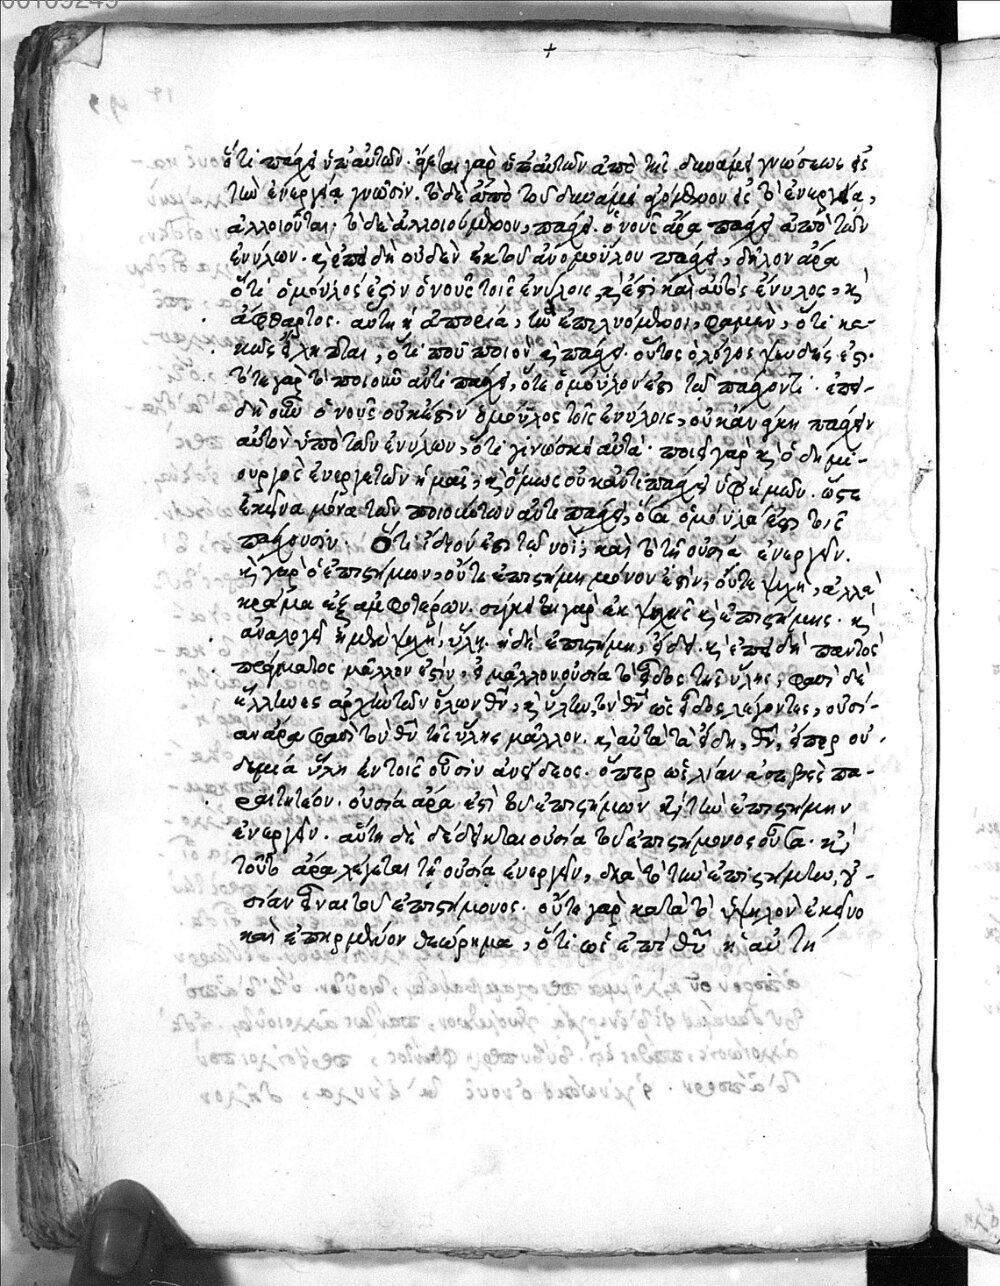 00109249
ὅτι πάσχει ὑπ' αὐτῶν. ἄγεται γὰρ ὑπ' αὐτῶν ἀπὸ τῆς δυνάμει γνώσεως εἰς
τὴν ἐνεργείᾳ γνῶσιν. τὸ δὲ ἀπὸ τοῦ δυνάμει ἀγόμενον εἰς τὸ ἐνεργείᾳ,
ἀλλοιοῦται· τὸ δὲ ἀλλοιούμενον, πάσχει. ὁ νοῦς ἄρα πάσχει ἀπὸ τῶν
ἐνύλων. καὶ ἐπειδὴ οὐδὲν ἐκ τοῦ ἀνομοΰλου πάσχει, δῆλον ἄρα
ὅτι ὁμόϋλός ἐστιν ὁ νοῦς τοῖς ἐνύλοις, καὶ ἔστι καὶ αὐτὸς ἔνυλος, καὶ
ἄφθαρτος. αὕτη ἡ ἀπορία, ἣν ἐπιλυόμενοι, φαμὲν, ὅτι κα-
κῶς εἴληπται, ὅτι πᾶν ποιοῦν καὶ πάσχει. οὗτος ὁ λόγος ψευδής ἐστι.
τότε γὰρ τὸ ποιοῦν ἀντιπάσχει, ὅτε ὁμόϋλόν ἐστι τῷ πάσχοντι. ἐπει-
δὴ οὖν ὁ νοῦς οὐκ ἔστιν ὁμόϋλος τοῖς ἐνύλοις, οὐκ ἀνάγκη πάσχειν
αὐτὸν ὑπὸ τῶν ἐνύλων, ὅτι γινώσκει αὐτά. ποιεῖ γὰρ καὶ ὁ δημι-
ουργὸς ἐνεργεῖ τῶν ἡμᾶς, καὶ ὅμως οὐκ ἀντιπάσχει ὑφ' ἡμῶν. ὥστε
ἐκεῖνα μόνα τῶν ποιούντων ἀντιπάσχει, ὅσα ὁμόϋλά ἐστι τοῖς
πάσχουσιν. Ὅτι ἴδιόν ἐστι τῷ νοῒ, καὶ τὸ τῇ οὐσίᾳ ἐνεργεῖν.
καὶ γὰρ ὁ ἐπιστήμων, οὔτε ἐπιστήμη μόνον ἐστὶν, οὔτε ψυχὴ, ἀλλὰ
κρᾶμα ἐξ ἀμφοτέρων. σύγκειται γὰρ ἐκ ψυχῆς καὶ ἐπιστήμης. καὶ
ἀναλογεῖ ἡ μὲν ψυχὴ, ὕλῃ. ἡ δὲ ἐπιστήμη, εἴδει. καὶ ἐπειδὴ παντὸς
πράγματος μᾶλλόν ἐστιν, καὶ μᾶλλον οὐσία τὸ εἶδος τῆς ὕλης, φασὶ δὲ
Ἕλληνες ἀρχὴν τῶν ὅλων θεὸν, καὶ ὕλην, τὸν θεὸν ὡς εἶδος λέγοντες, οὐσί-
αν ἄρα φασὶ τὸν θεὸν τῆς ὕλης μᾶλλον. καὶ αὐτὰ τὰ εἴδη, θεὸν, εἴπερ οὐ-
δεμία ὕλη ἐν τοῖς οὖσιν ἀνείδεος. ὅπερ ὡς λίαν ἀσεβὲς πα-
ραιτητέον. οὐσία ἄρα ἐστὶ τοῦ ἐπιστήμων καὶ τὴν ἐπιστήμην
ἐνεργεῖν. αὕτη δὲ δέδεικται οὐσία τοῦ ἐπιστήμονος οὖσα. καὶ
τοῦτο ἄρα λέγεται τῇ οὐσίᾳ ἐνεργεῖν, διὰ τὸ τὴν ἐπιστήμην, οὐ-
σίαν εἶναι τοῦ ἐπιστήμονος. οὔτε γὰρ κατὰ τὸ ὑψηλὸν ἐκεῖνο
καὶ ἐπηρμένον θεώρημα, ὅτι ὡς ἐπὶ θεοῦ ἡ αὐτὴ